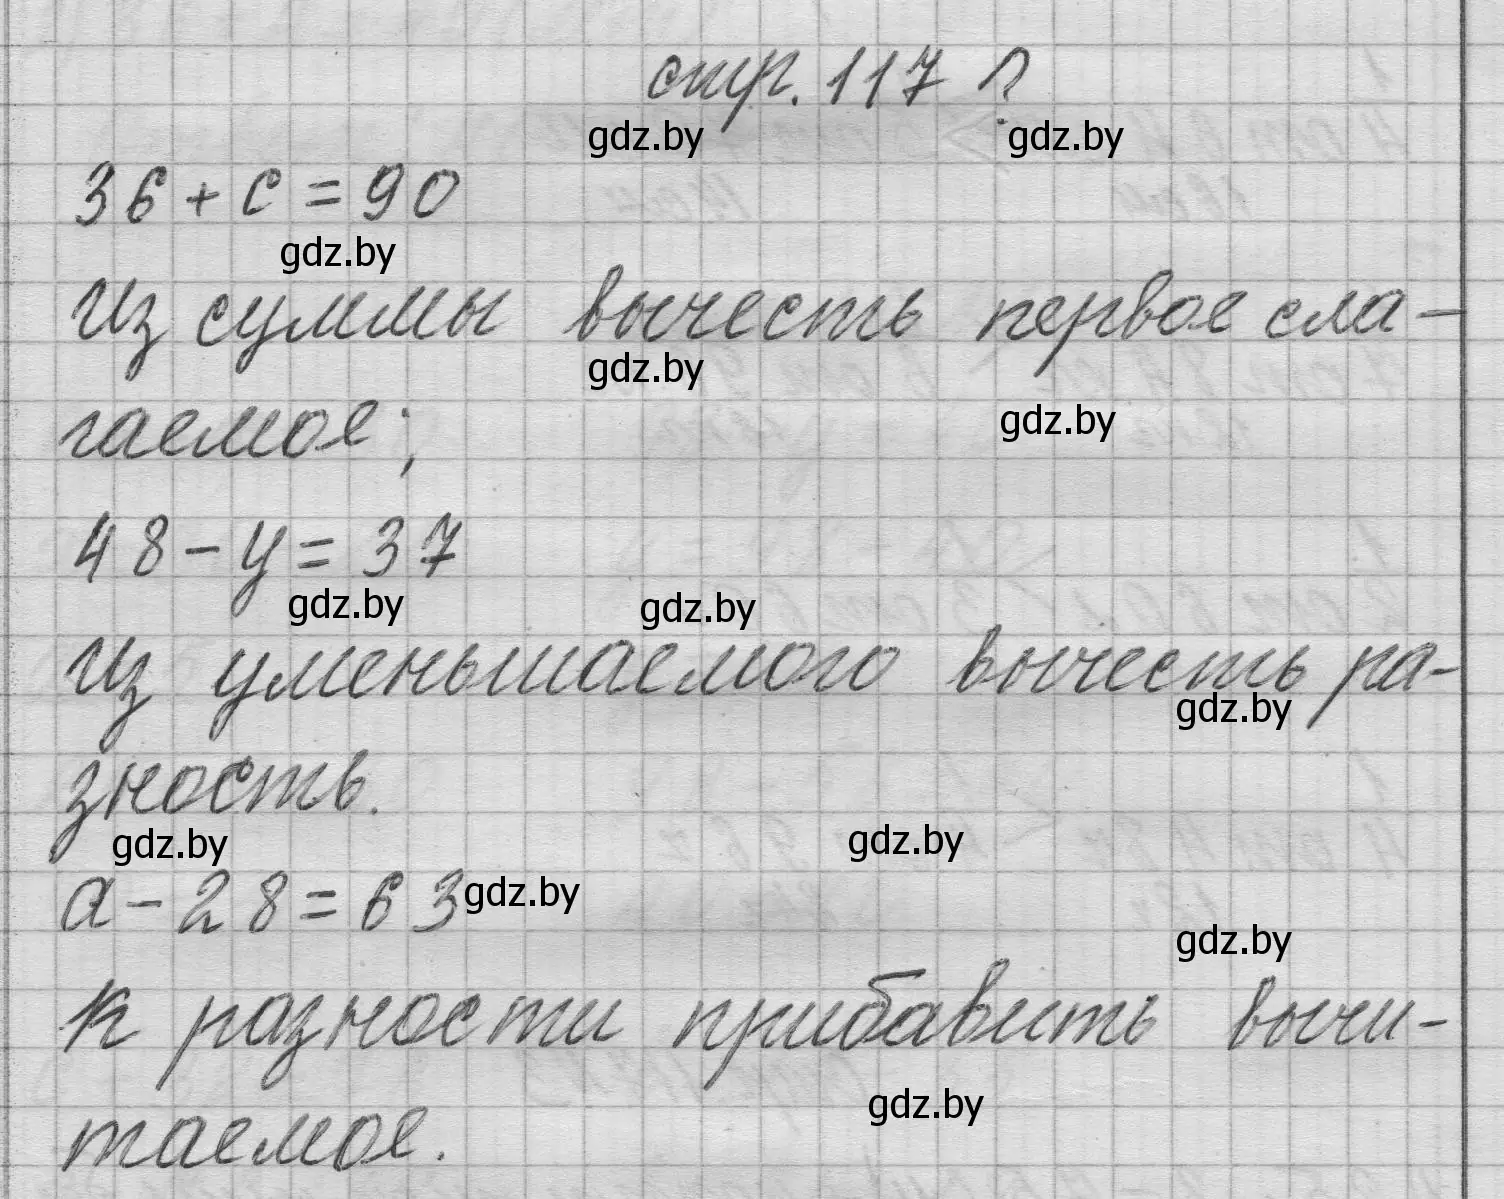 стр. 117 ?
gdz.by gdz.by
36 + с = 90
gdz.by
Из суммы вычесть первое сла-
gdz.by
gdz.by
гаемое;
48 - у = 37
gdz.by gdz.by
Из уменьшаемого вычесть ра-
gdz.by
зность.
gdz.by gdz.by
а - 28 = 63 gdz.by
gdz.by
К разности прибавить вычи-
gdz.by
таемое.